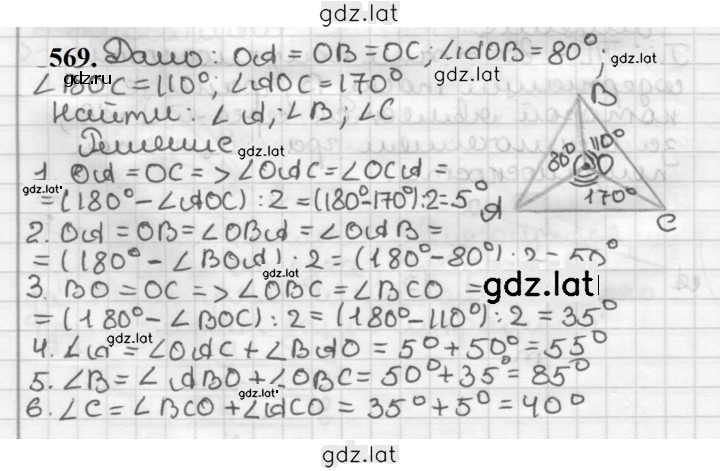 gdz.lat
569. Дано: OA = OB = OC; ∠AOB = 80°;
∠BOC = 110°; ∠AOC = 170°
gdz.ru
Найти: ∠A; ∠B; ∠C
Решение
1. OA = OC => ∠OAC = ∠OCA =
gdz.lat
= (180° - ∠AOC) : 2 = (180° - 170°) : 2 = 5°
2. OA = OB = ∠OBA = ∠OAB =
= (180° - ∠BOA) : 2 = (180° - 80°) : 2
gdz.lat
3. BO = OC => ∠OBC = ∠BCO =
gdz.lat
= (180° - ∠BOC) : 2 = (180° - 110°) : 2 = 35°
4. ∠A = ∠OAC + ∠BAO = 5° + 50° = 55°
gdz.lat
5. ∠B = ∠ABO + ∠OBC = 50° + 35° = 85°
gdz.lat
6. ∠C = ∠BCO + ∠ACO = 35° + 5° = 40°
B
80° 110°
O
170°
A
C
gdz.lat